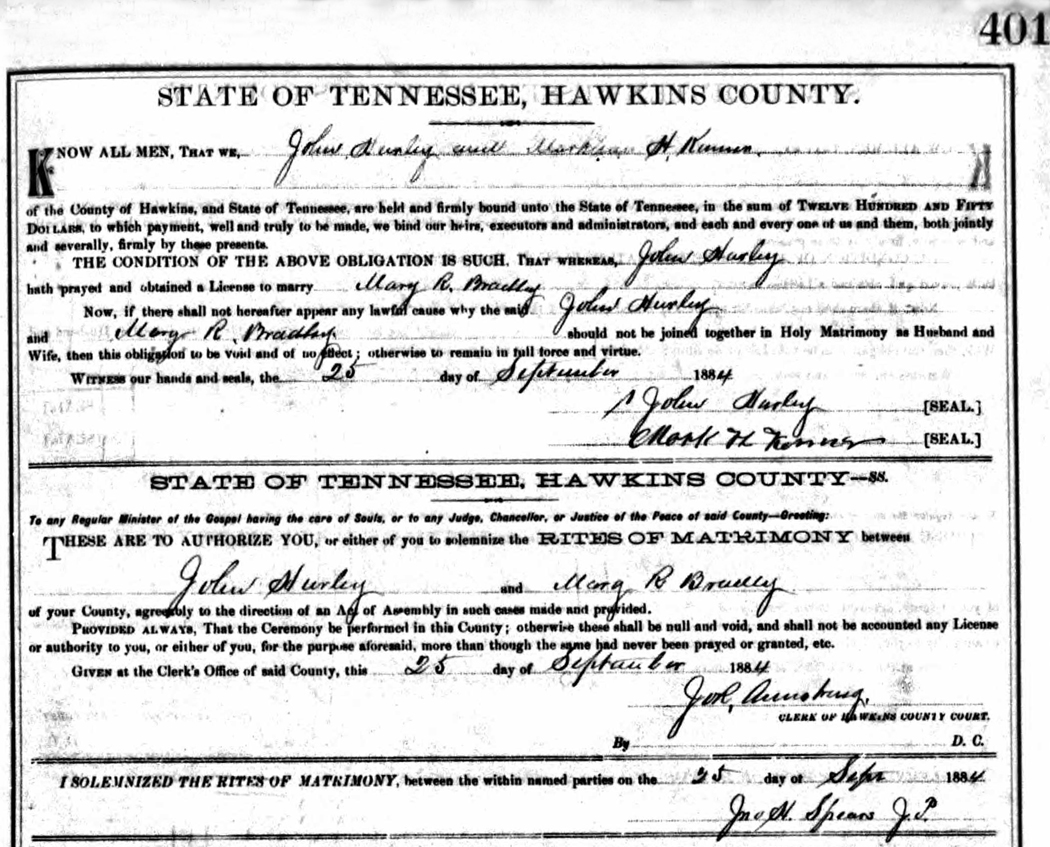 401
STATE OF TENNESSEE, HAWKINS COUNTY.
KNOW ALL MEN, THAT WE, John Hurley and H. Kinner
of the County of Hawkins, and State of Tennessee, are held and firmly bound unto the State of Tennessee, in the sum of TWELVE HUNDRED AND FIFTY
DOLLARS, to which payment, well and truly to be made, we bind our heirs, executors and administrators, and each and every one of us and them, both jointly
and severally, firmly by these presents.
THE CONDITION OF THE ABOVE OBLIGATION IS SUCH, THAT WHEREAS, John Hurley
hath prayed and obtained a License to marry Mary R. Bradley
Now, if there shall not hereafter appear any lawful cause why the said John Hurley
and Mary R. Bradley should not be joined together in Holy Matrimony as Husband and
Wife, then this obligation to be void and of no effect; otherwise to remain in full force and virtue.
WITNESS our hands and seals, the 25 day of September 1884
John Hurley [SEAL.]
Mark H Kinner [SEAL.]
STATE OF TENNESSEE, HAWKINS COUNTY—SS.
To any Regular Minister of the Gospel having the care of Souls, or to any Judge, Chancellor, or Justice of the Peace of said County—Greeting:
THESE ARE TO AUTHORIZE YOU, or either of you to solemnize the RITES OF MATRIMONY between
John Hurley and Mary R Bradley
of your County, agreeably to the direction of an Act of Assembly in such cases made and provided.
PROVIDED ALWAYS, That the Ceremony be performed in this County; otherwise these shall be null and void, and shall not be accounted any License
or authority to you, or either of you, for the purpose aforesaid, more than though the same had never been prayed or granted, etc.
GIVEN at the Clerk's Office of said County, this 25 day of September 1884
Armstrong,
CLERK OF HAWKINS COUNTY COURT.
By D. C.
I SOLEMNIZED THE RITES OF MATRIMONY, between the within named parties on the 25 day of Sept 1884
Jno H. Spears J.P.